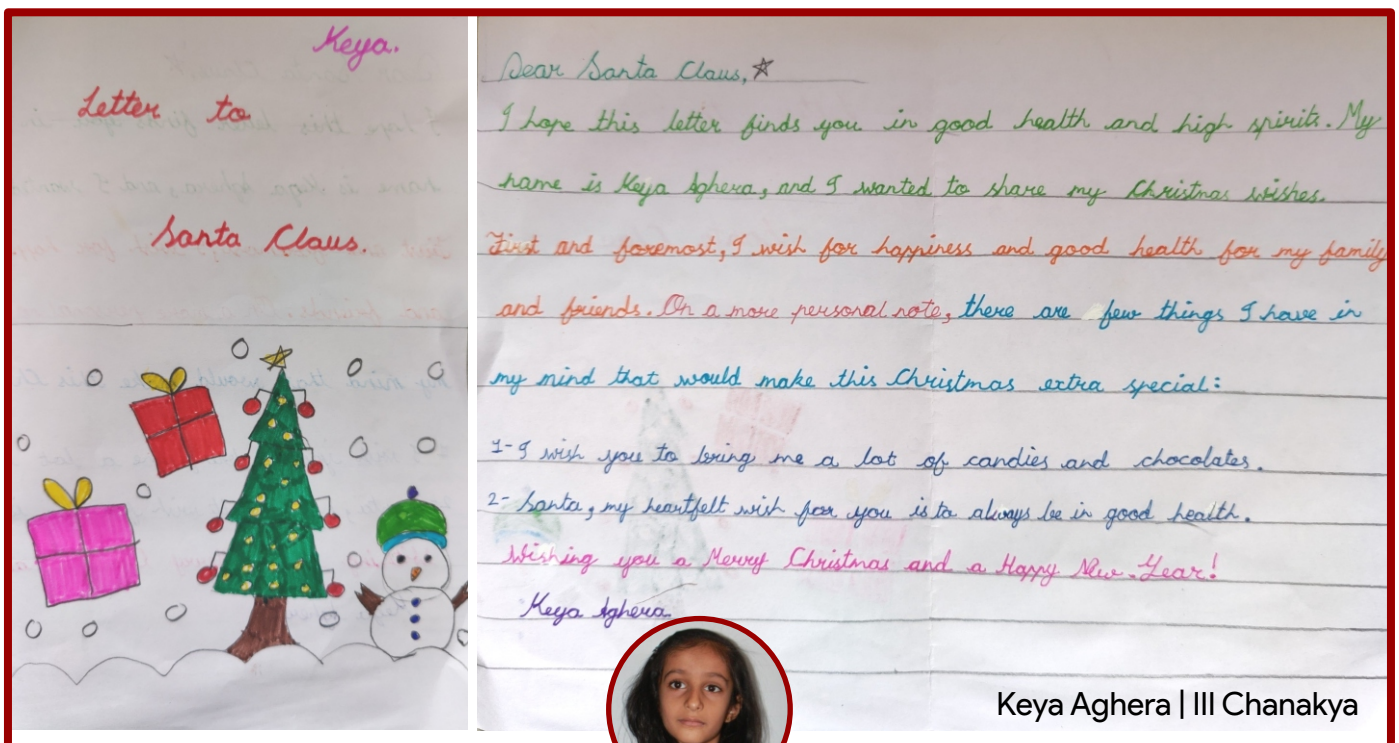 Keya.
Letter to
Santa Claus.
Dear Santa Claus,
I hope this letter finds you in good health and high spirits. My
name is Keya Aghera, and I wanted to share my Christmas wishes.
First and foremost, I wish for happiness and good health for my family
and friends. On a more personal note, there are few things I have in
my mind that would make this Christmas extra special:
1- I wish you to bring me a lot of candies and chocolates.
2- Santa, my heartfelt wish for you is to always be in good health.
Wishing you a Merry Christmas and a Happy New-Year!
Keya Aghera
Keya Aghera | III Chanakya